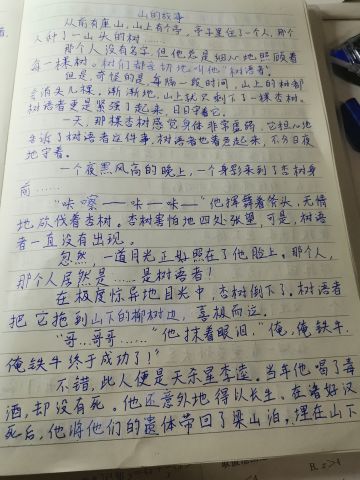 山的故事
从前有座山,山上有个亭,亭子里住了一个人,那个
人种了一山头的树……
那个人没有名字,但他总是细心地照顾着
每一棵树。树们都亲切地叫他"树语者"。
但是,奇怪的是,每隔一段时间,山上的树都
会消失几棵,渐渐地,山上就只剩下了一棵杏树。
树语者更是紧张了起来,日日守着它。
一天,那棵杏树感觉身体非常虚弱,它担心地
告诉了树语者这件事,树语者也着急起来,不分日夜
地守着。
一个夜黑风高的晚上,一个身影来到了杏树身
前……
"咔嚓——咔—咔—"他挥舞着斧头,无情
地砍伐着杏树。杏树害怕地四处张望,可是,树语
者一直没有出现。
忽然,一道月光正好照在了他脸上。那个人,
那个人居然是……是树语者!
在极度惊异地目光中,杏树倒下了。树语者
把它拖到山下的柳树边,喜极而泣。
"哥,哥哥……"他抹着眼泪,"俺,俺铁牛,
俺铁牛终于成功了!"
不错,此人便是天杀星李逵。当年他喝了毒
酒,却没有死。他还意外地得以长生。在诸好汉
死后,他将他们的遗体带回了梁山泊,埋在山下